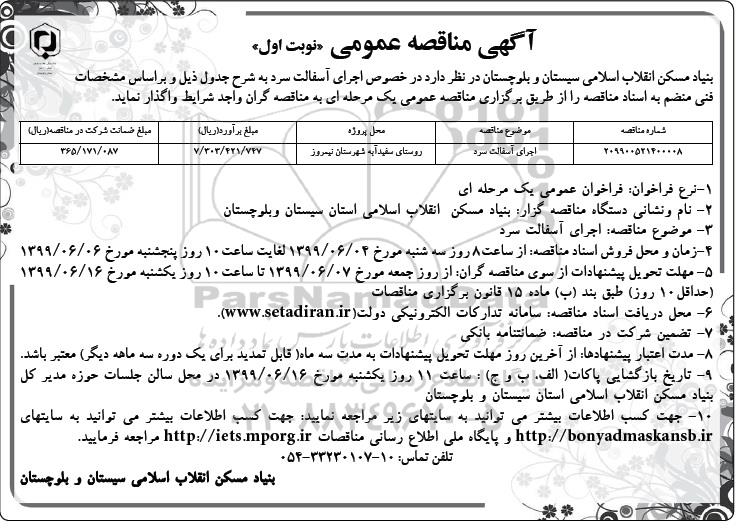 آگهی مناقصه عمومی «نوبت اول»
بنیاد مسکن انقلاب اسلامی سیستان و بلوچستان در نظر دارد در خصوص اجرای آسفالت سرد به شرح جدول ذیل و براساس مشخصات
فنی منضم به اسناد مناقصه را از طریق برگزاری مناقصه عمومی یک مرحله ای به مناقصه گران واجد شرایط واگذار نماید.
شماره مناقصه موضوع مناقصه محل پروژه مبلغ برآورد(ریال) مبلغ ضمانت شرکت در مناقصه(ریال)
۲۰۹۹۰۰۵۲۱۴۰۰۰۰۸ اجرای آسفالت سرد روستای سفیدآبه شهرستان نیمروز ۷/۳۰۳/۴۲۱/۷۴۷ ۳۶۵/۱۷۱/۰۸۷
۱-نرع فراخوان: فراخوان عمومی یک مرحله ای
۲- نام ونشانی دستگاه مناقصه گزار: بنیاد مسکن انقلاب اسلامی استان سیستان وبلوچستان
۳- موضوع مناقصه: اجرای آسفالت سرد
۴-زمان و محل فروش اسناد مناقصه: از ساعت۸ روز سه شنبه مورخ ۱۳۹۹/۰۶/۰۴ لغایت ساعت۱۰ روز پنجشنبه مورخ ۱۳۹۹/۰۶/۰۶
۵- مهلت تحویل پیشنهادات از سوی مناقصه گران: از روز جمعه مورخ ۱۳۹۹/۰۶/۰۷ تا ساعت۱۰ روز یکشنبه مورخ ۱۳۹۹/۰۶/۱۶
(حداقل۱۰ روز) طبق بند (ب) ماده ۱۵ قانون برگزاری مناقصات
۶- محل دریافت اسناد مناقصه: سامانه تدارکات الکترونیکی دولت(www.setadiran.ir).
۷- تضمین شرکت در مناقصه: ضمانتنامه بانکی
۸- مدت اعتبار پیشنهادها: از آخرین روز مهلت تحویل پیشنهادات به مدت سه ماه( قابل تمدید برای یک دوره سه ماهه دیگر) معتبر باشد.
۹- تاریخ بازگشایی پاکات( الف، ب و ج) : ساعت ۱۱ روز یکشنبه مورخ ۱۳۹۹/۰۶/۱۶ در محل سالن جلسات حوزه مدیر کل
بنیاد مسکن انقلاب اسلامی استان سیستان و بلوچستان
۱۰- جهت کسب اطلاعات بیشتر می توانید به سایتهای زیر مراجعه نمایید: جهت کسب اطلاعات بیشتر می توانید به سایتهای
http://bonyadmaskansb.ir و پایگاه ملی اطلاع رسانی مناقصات http://iets.mporg.ir مراجعه فرمایید.
تلفن تماس: ۱۰-۳۳۲۳۰۱۰۷-۰۵۴
بنیاد مسکن انقلاب اسلامی سیستان و بلوچستان
ParsNamadData